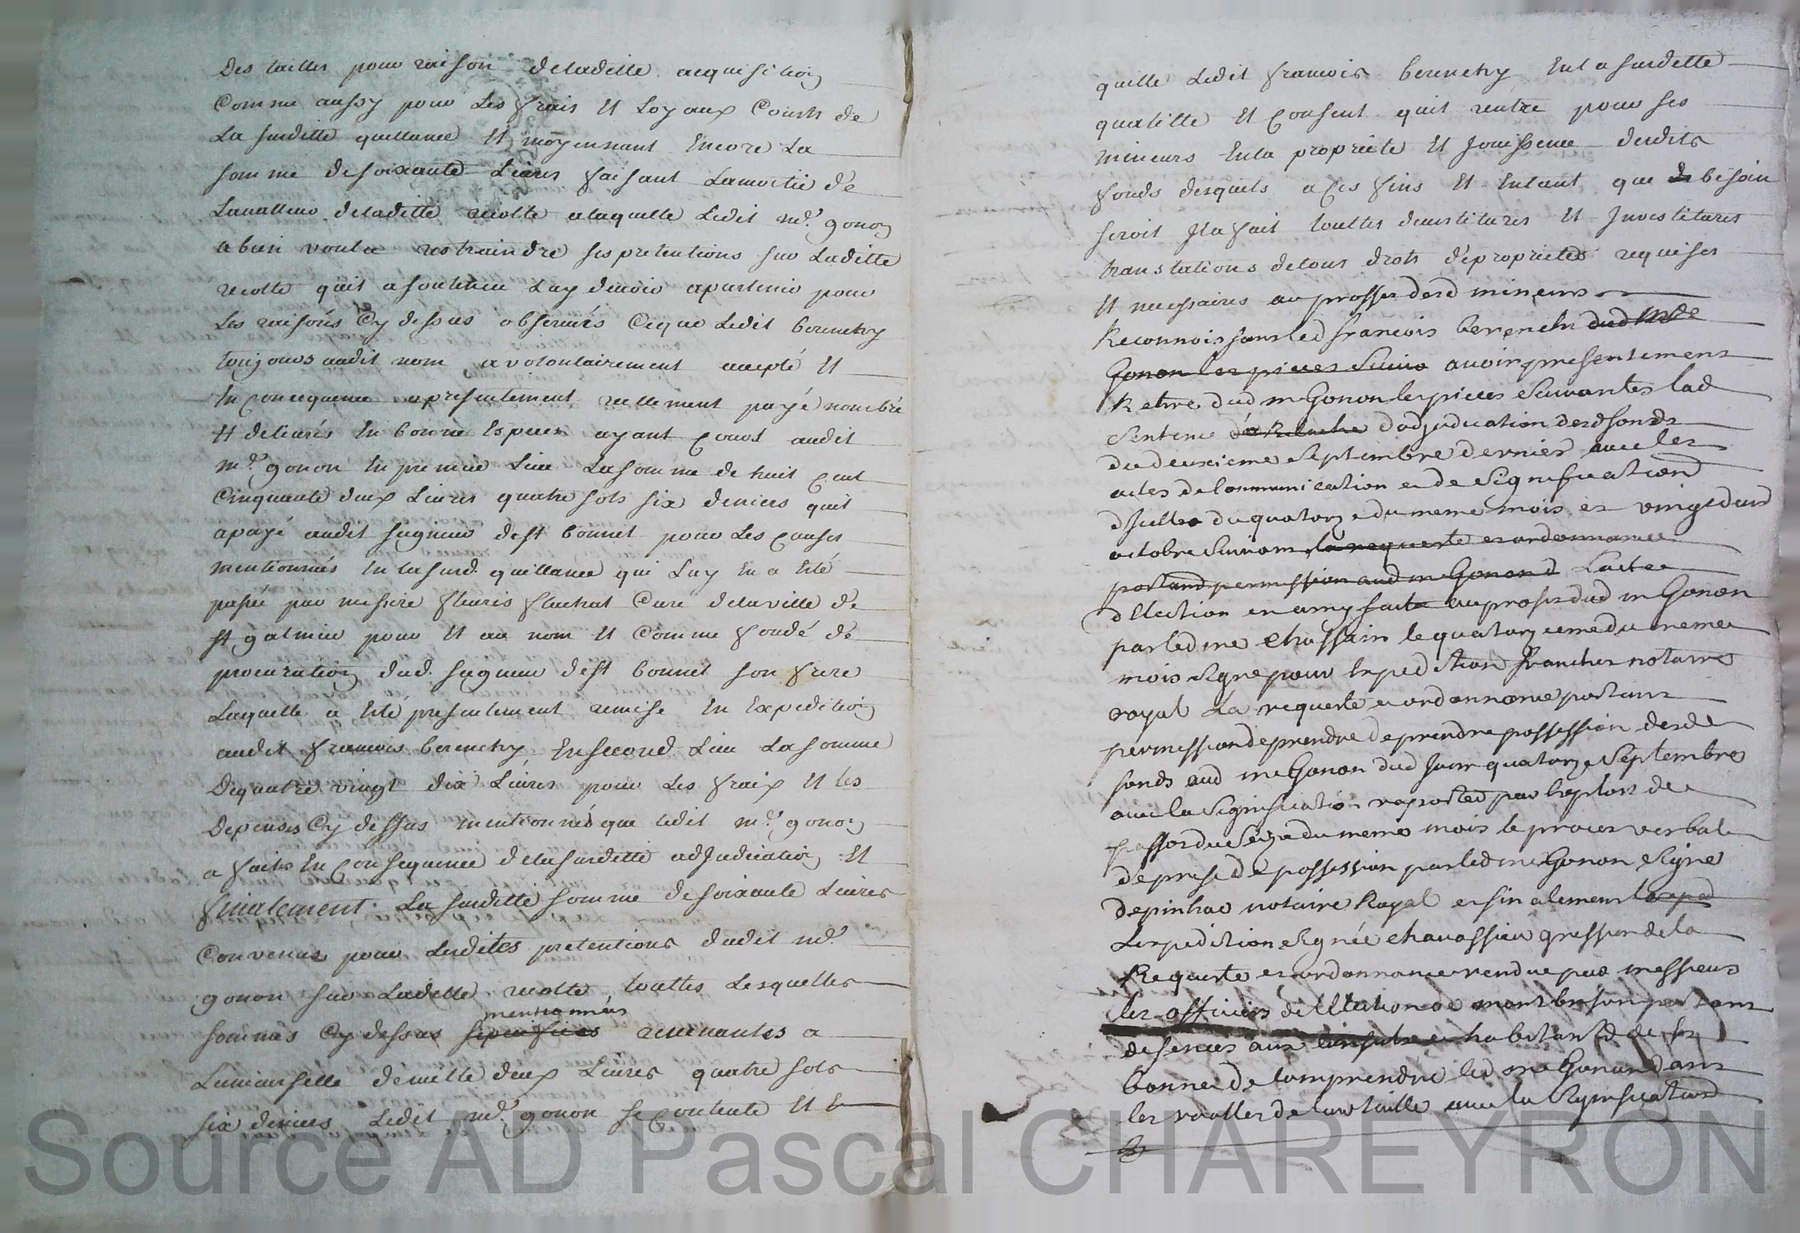 Des tailles pour raison deladitte acquisition
Comme aussy pour Les frais et Loyaux Couts de
La surditte quittance et moyennant Encore La
somme de soixante Livres faisant Lamoitié de
Lavalleur deladitte recolte alaquelle Ledit me. gonon
abien voulu restraindre ses pretentions sur Laditte
recolte quil asoutenu Luy devoir apartenir pour
Les raisons Cy dessus observés Ceque Ledit berenchy
toujours audit nom avolontairement accepté et
En consequence apresentement reellement payé nombré
et delivrés En bonne Especes ayant cours audit
me. gonon En premier Lieu Lasomme de huit cent
Cinquante deux Livres quatre sols six deniers quil
apayé audit seigneur dest bonnet pour Les causes
mentionnés En lasurd. quittance qui Luy En a Eté
passée par messire fleuris flachat Curé delaville de
st galmier pour et au nom et Comme fondé de
procuration dud. seigneur dest bonnet son frere
Laquelle a Eté presentement remise En Expedition
audit francois berenchy Ensecond Lieu Lasomme
Dequatre vingt dix Livres pour Les fraix et les
Depenses Cy dessus mentionnés que ledit me. gonon
a faits En Consequence delasurditte adjudication et
finalement. La surditte somme de soixante Livres
Convenus pour Lesdites pretentions dudit me.
gonon sur Laditte recolte touttes Lesquelles
mentionnés
sommes Cy dessus specifiées revenantes a
Lamême selle de mille deux Livres quatre sols
six deniers Ledit me. gonon se contente et En
quitte Ledit francois berenchy Enla surditte
qualitte et consent quil rentre pour ses
mineurs Enla propriete et Jouissence desdits
fonds desquels a ces fins et Entant que de besoin
seroit Jl a fait touttes demititures et Jnvestitures
translations detous droits de propriettes requises
et necessaires au proffit desd mineurs
Reconnoissant led francois berenchi dud Me
Gonon les pieces suiva avoir presentement
Retire dud me Gonon les pieces suivantes lad
sentence d'adjudication desd fonds
du deuxieme septembre dernier avec les
actes de communication et de signification
d'Jcelle du quatorze du meme mois et vingt dud
octobre suivant la requeste et ordonnance
portand permission aud me Gonond Lacte
d Election en amy faite au profit dud me Gonon
par led me Chassain le quatorzieme du meme
mois signe pour Expedition franchet notaire
royal La requeste et ordonnance portant
permission deprendre deprendre possession desd
fonds aud me Gonon dud Jour quatorze septembre
avec la signification raportee par Exploit de
du seize du meme mois le proces verbal
de prise de possession par led me Gonon signe
depinhac notaire Royal et finalement
Lexpedition signée chavassieu greffier de la
Requeste et ordonnance rendue par messieurs
les officiers de lElection de montbrison portant
defences aux consuls et habitants de st
bonnet de comprendre led me Gonon dans
les rolles de leur taille avec la signification